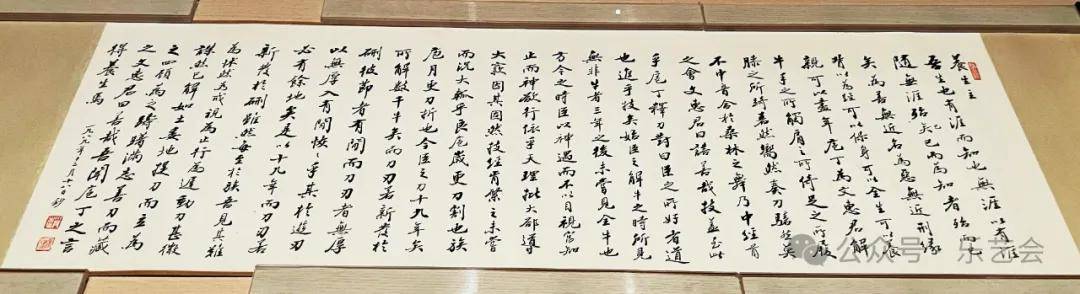 養生主
吾生也有涯而知也無涯以有涯
隨無涯殆矣已而為知者殆而已
矣為善無近名為惡無近刑緣
督以為經可以保身可以全生可以養
親可以盡年庖丁為文惠君解
牛手之所觸肩之所倚足之所履
膝之所踦砉然嚮然奏刀騞然莫
不中音合於桑林之舞乃中經首
之會文惠君曰譆善哉技蓋至此
乎庖丁釋刀對曰臣之所好者道
也進乎技矣始臣之解牛之時所見
無非牛者三年之後未嘗見全牛也
方今之時臣以神遇而不以目視官知
止而神欲行依乎天理批大郤導
大窾因其固然技經肯綮之未嘗
而況大軱乎良庖歲更刀割也族
庖月更刀折也今臣之刀十九年矣
所解數千牛矣而刀刃若新發於
硎彼節者有間而刀刃者無厚
以無厚入有間恢恢乎其於遊刃
必有餘地矣是以十九年而刀刃若
新發於硎雖然每至於族吾見其難
為怵然為戒視為止行為遲動刀甚微
謋然已解如土委地提刀而立為
之四顧為之躊躇滿志善刀而藏
之文惠君曰善哉吾聞庖丁之言
得養生焉
一九八九年十二月十八日鈔
公众号·乐艺会